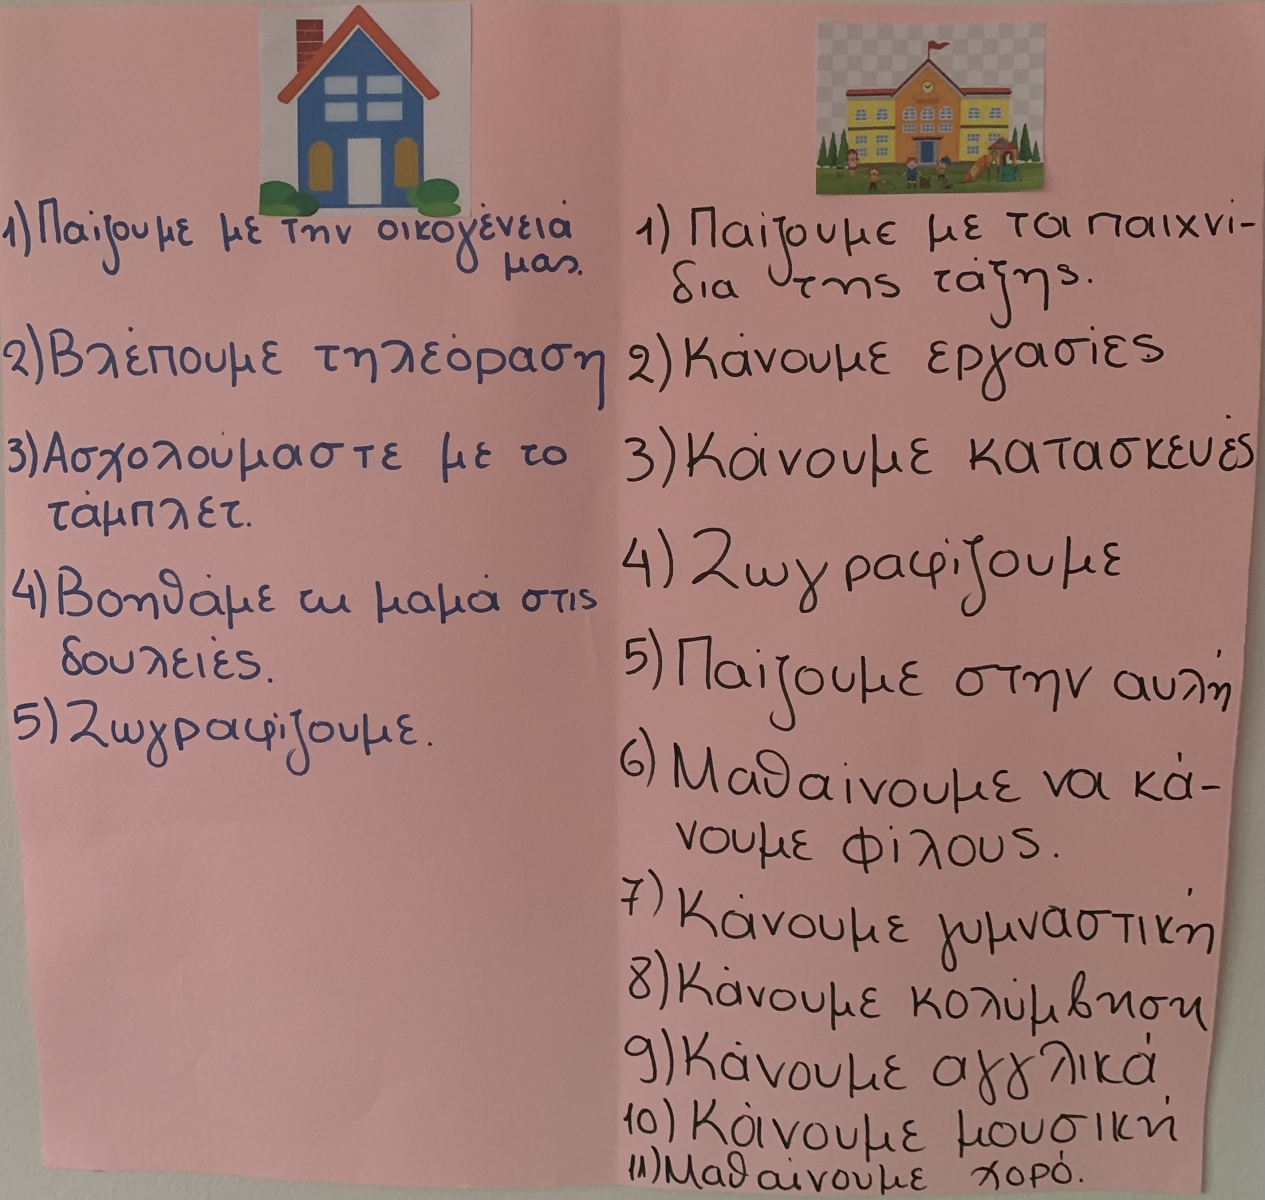 1) Παίζουμε με την οικογένειά
μας.
2) Βλέπουμε τηλεόραση
3) Ασχολούμαστε με το
τάμπλετ.
4) Βοηθάμε τη μαμά στις
δουλειές.
5) Ζωγραφίζουμε.
1) Παίζουμε με τα παιχνί-
δια της τάξης.
2) Κάνουμε εργασίες
3) Κάνουμε κατασκευές
4) Ζωγραφίζουμε
5) Παίζουμε στην αυλή
6) Μαθαίνουμε να κά-
νουμε φίλους.
7) Κάνουμε γυμναστική
8) Κάνουμε κολύμβηση
9) Κάνουμε αγγλικά
10) Κάνουμε μουσική
11) Μαθαίνουμε χορό.